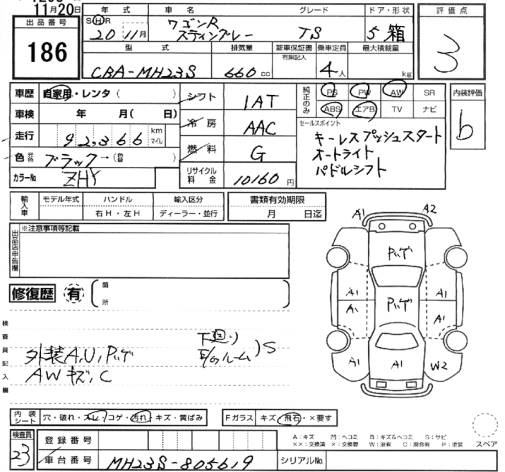 11月20日
出品番号
186
年式 車名 グレード ドア・形状
SⒽR 20年11月 ワゴンR スティングレー TS 5 箱
型式 排気量 新車保証書 有無記入 乗車定員 最大積載量
CBA-MH23S 660cc 4人 kg
評価点
3
車歴 自家用・レンタ( )
車検 年 月( 日)
走行 92,366 km マイル
色 ブラック→( )
カラーNo ZHY
シフト 1AT
冷房 AAC
燃料 G
リサイクル料金 10160円
純正のみ
PS PW AW SR
ABS エアB TV ナビ
セールスポイント
キーレスプッシュスタート
オートライト
パドルシフト
内装評価
b
輸入車 モデル年式 ハンドル 輸入区分
右H・左H ディーラー・並行
書類有効期限
月 日迄
※注意事項等記載
修復歴 有 箇所
検査員記入欄
外装A,U,Pハゲ
AWキズ,C
下回り
Eルーム )S
A1 A2
Pハゲ
A1 A1
Pハゲ
A1 A1
A1 A1 W2
内装シート 穴・破れ・スレ・コゲ・汚れ・キズ・黄ばみ
Fガラス キズ・飛石・×要す
A:キズ M:ヘコミ B:キズ&ヘコミ S:サビ
スペア
検査員
23
登録番号
車台番号 MH23S-805619 シリアルNo